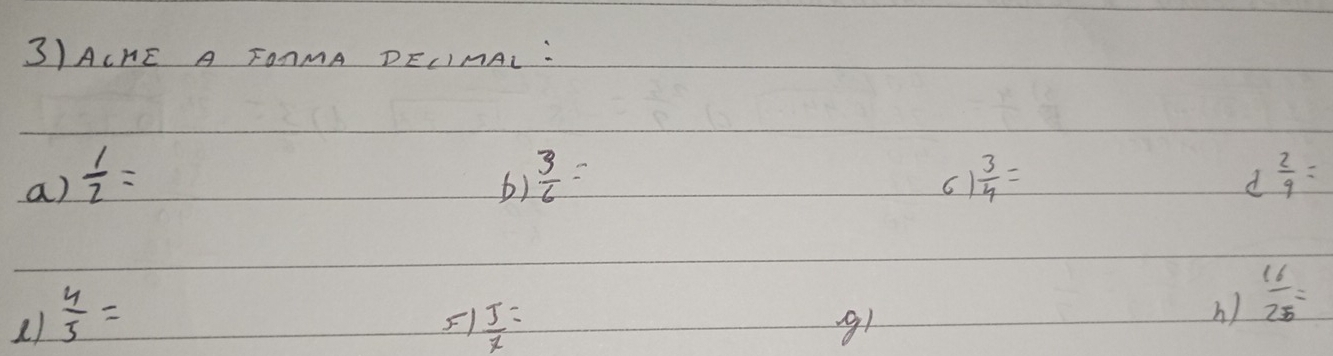 3) ACHE A FORMA DECIMAL:
a) 1/2 = b) 3/6 = c) 3/4 = d 2/9 =
e) 4/5 = f) 5/7 = g) h) 16/25 =